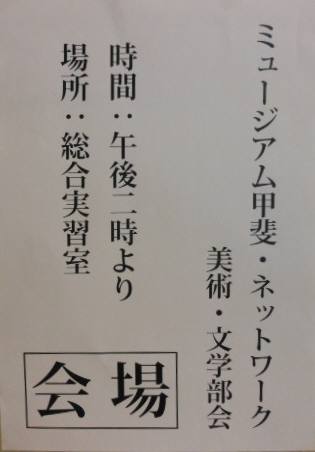 ミュージアム甲斐・ネットワーク
美術・文学部会
時間：午後二時より
場所：総合実習室
会場